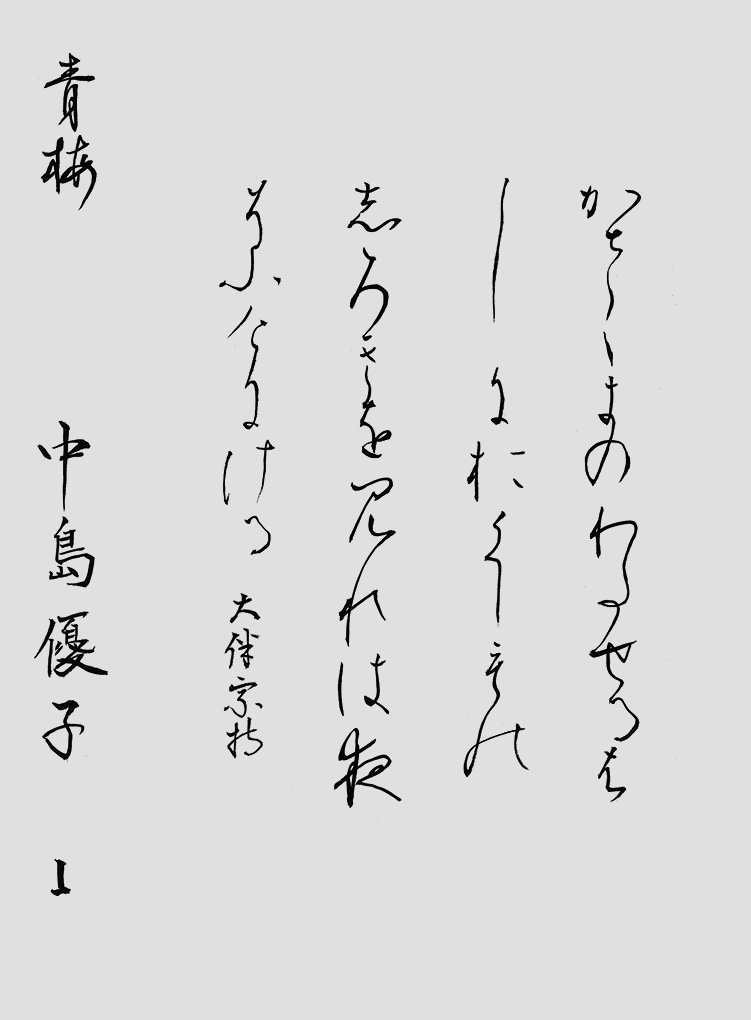 かさゝきのわたせるは
しにおくしもの
志ろきを見れは夜
そふけにける 大伴家持
青梅 中島優子